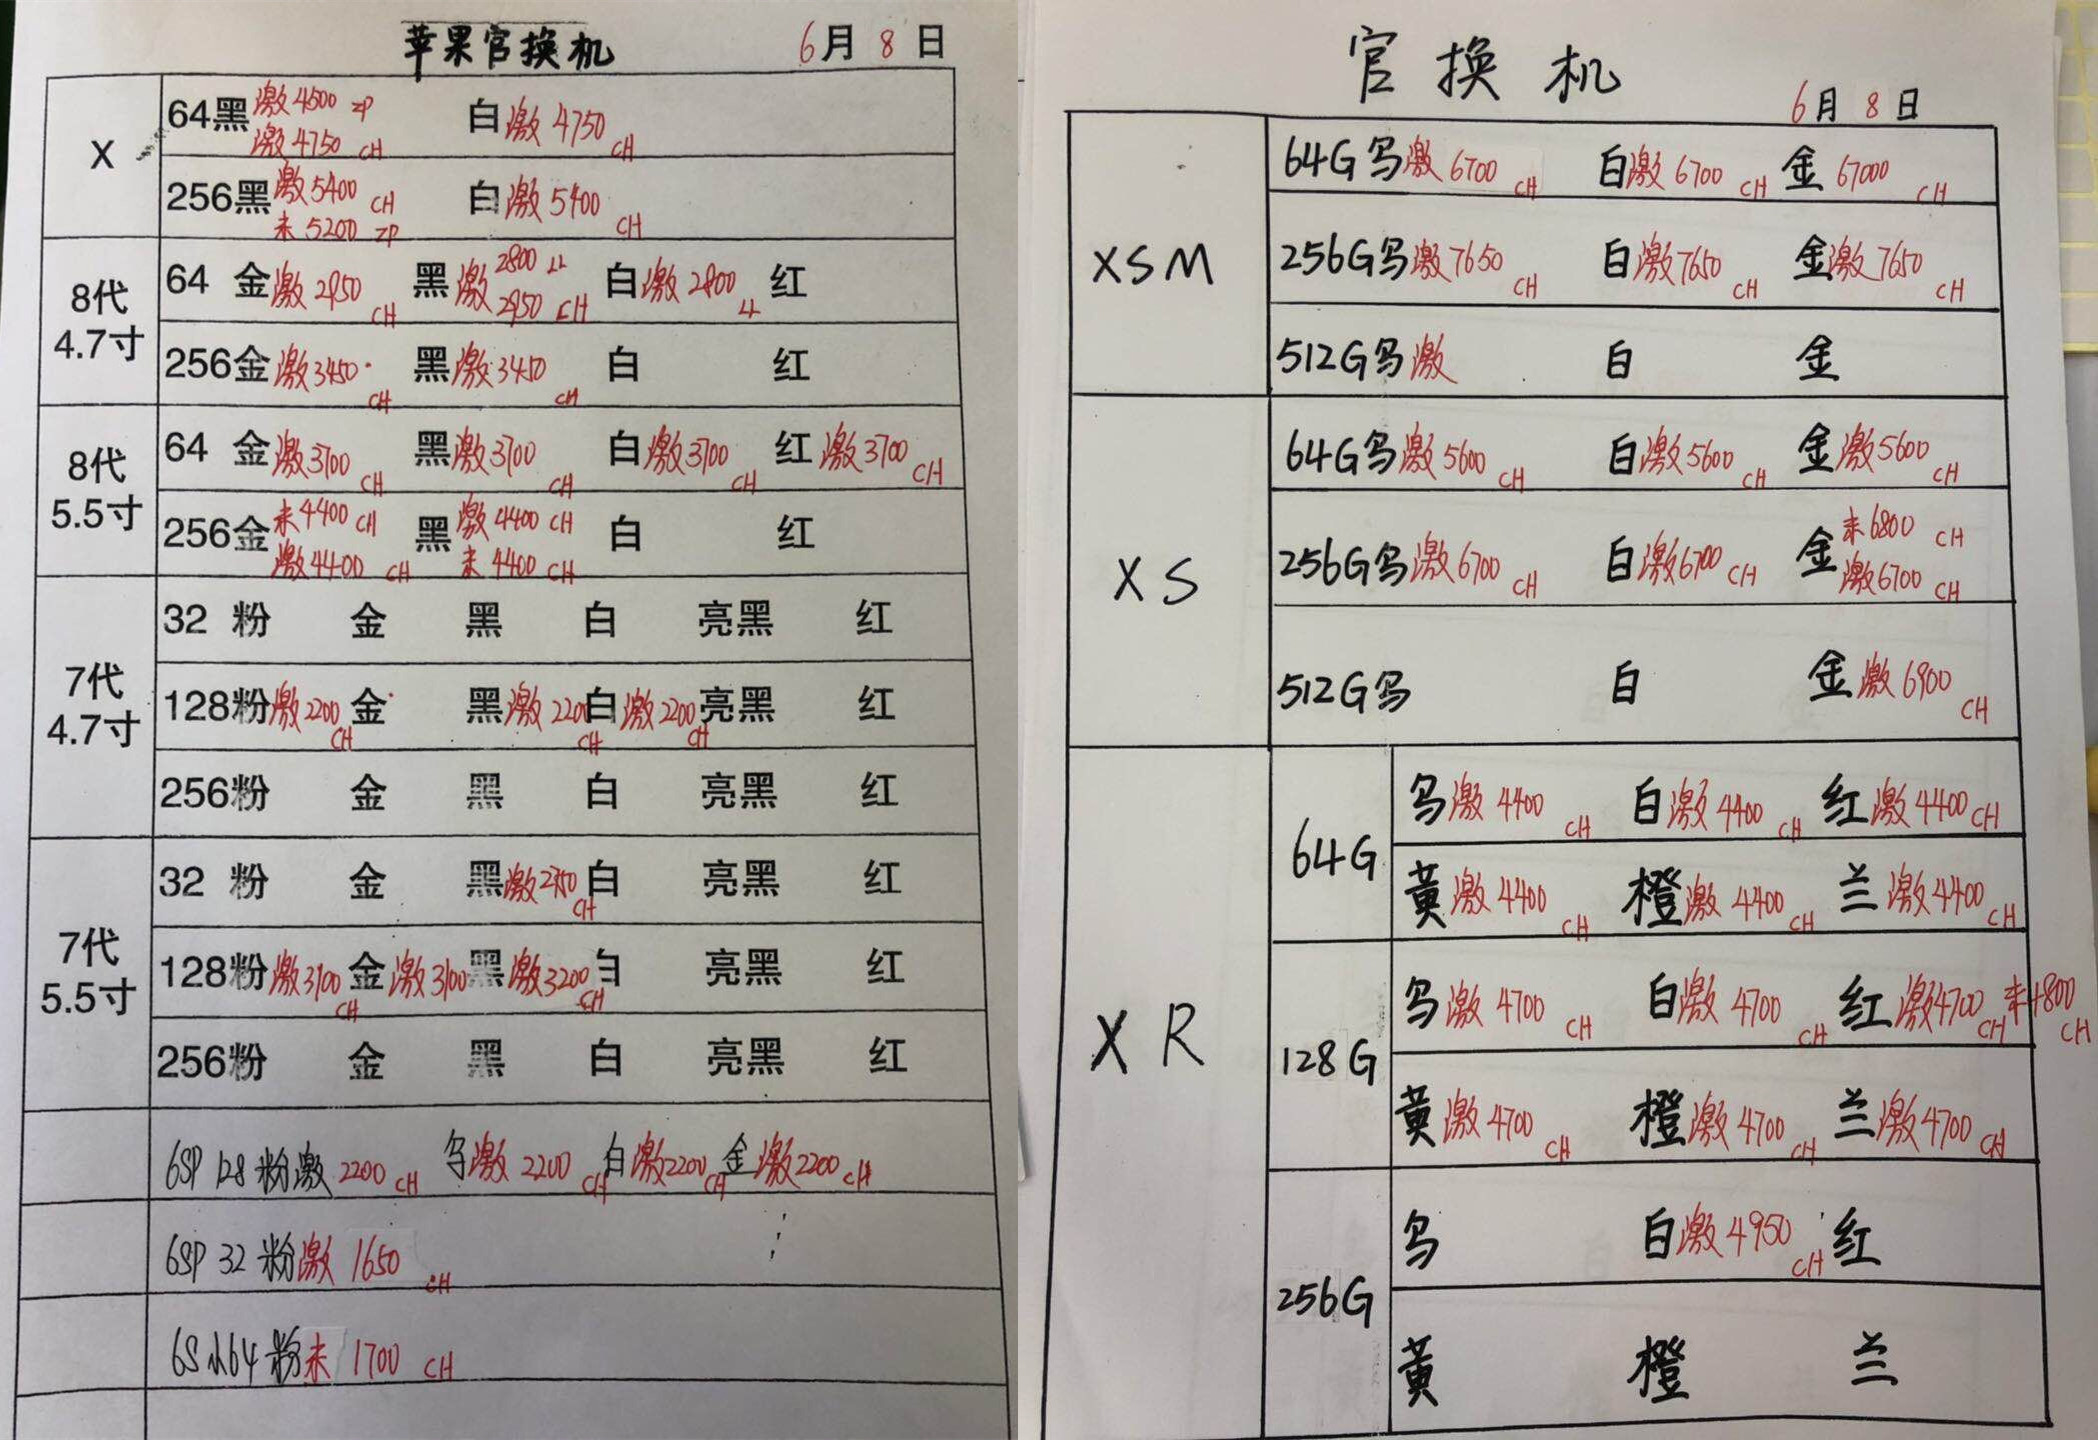 苹果官换机 6月8日
X
64黑 激4500 ZP 白 激4750 CH
激4750 CH
256黑 激5400 CH 白 激5400 CH
未5200 ZP
8代
4.7寸
64 金 激2950 CH 黑 激 2800 LL 白 激2800 LL 红
2950 CH
256金 激3450 CH 黑 激3450 CH 白 红
8代
5.5寸
64 金 激3700 CH 黑 激3700 CH 白 激3700 CH 红 激3700 CH
256金 未4400 CH 黑 激4400 CH 白 红
激4400 CH 未4400 CH
7代
4.7寸
32 粉 金 黑 白 亮黑 红
128粉 激2200 CH 金 黑 激2200 CH 白 激2200 CH 亮黑 红
256粉 金 黑 白 亮黑 红
7代
5.5寸
32 粉 金 黑 激 CH 白 亮黑 红
128粉 激3100 CH 金 激3100 黑 激3200 CH 白 亮黑 红
256粉 金 黑 白 亮黑 红
6SP 128 粉激 2200 CH 乌激 2200 CH 白激2200 CH 金激2200 CH
6SP 32 粉激 1650 CH
6S小64粉未 1700 CH
官换机
6月8日
XSM
64G乌激 6700 CH 白激 6700 CH 金 67000 CH
256G乌激7650 CH 白激7650 CH 金激7650 CH
512G乌激 白 金
XS
64G乌激5600 CH 白激5600 CH 金激5600 CH
256G乌激6700 CH 白激6700 CH 金 未6800 CH
激6700 CH
512G乌 白 金激6900 CH
XR
64G
乌激 4400 CH 白激 4400 CH 红激4400 CH
黄激4400 CH 橙激 4400 CH 兰激4400 CH
128G
乌激 4700 CH 白激 4700 CH 红激4700 CH 未4800 CH
黄激4700 CH 橙激4700 CH 兰激4700 CH
256G
乌 白激4950 CH 红
黄 橙 兰